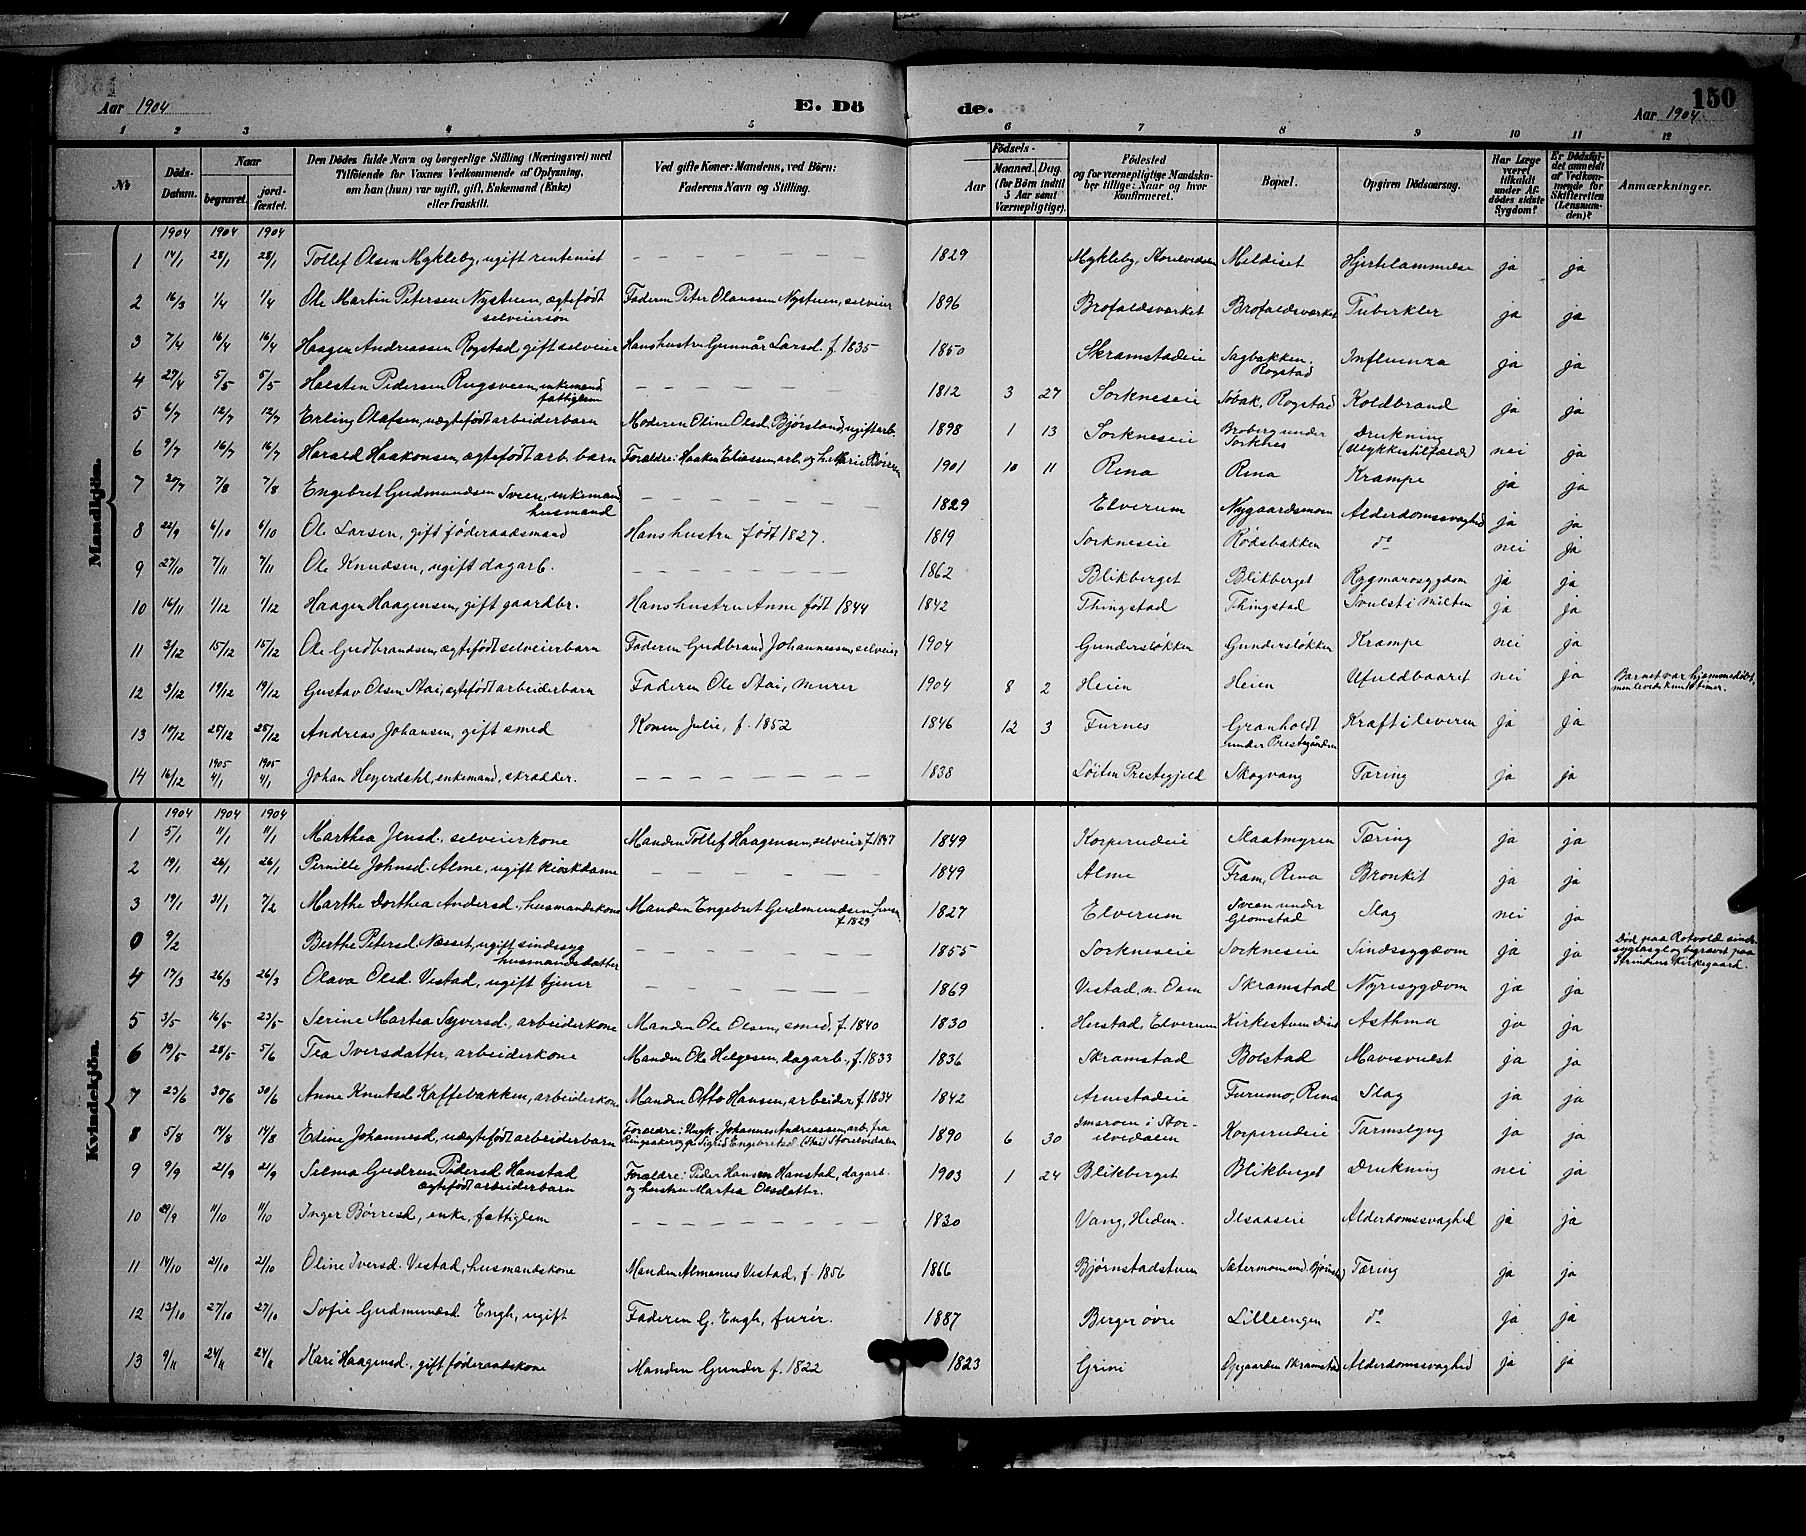 Aar 1904 E. Dö de. 150
Aar 1904
1 2 3 4 5 6 7 8 9 10 11 12
No Döds-Datum. Naar begravet. jord-fæstet. Den Dödes fulde Navn og borgerlige Stilling (Næringsvei) med Tilföiende for Voxnes Vedkommende af Oplysning, om han (hun) var ugift, gift, Enkemand (Enke) eller fraskilt. Ved gifte Koner: Mandens, ved Börn: Faderens Navn og Stilling. Födsels- Aar Maaned. Dag. (for Börn indtil 5 Aar samt Værnepligtige). Födested og for værnepligtige Mandskaber tillige: Naar og hvor Konfirmeret. Bopæl. Opgiven Dödsaarsag. Har Læge været tilkaldt under Afdödes sidste Sygdom? Er Dödsfaldet anmeldt af Vedkommende for Skifteretten (Lensmanden)? Anmærkninger.
Mandkjön.
1904 1904 1904
1 14/1 28/1 28/1 Tollef Olsen Mykleby, ugift rentenist — 1829 Mykleby, Storelvedalen Meldiset Hjertelammelse ja ja
2 16/3 1/4 1/4 Ole Martin Petersen Nystuen, ægtefødt selveiersøn Faderen Peter Olaussen Nystuen, selveier 1896 Brofaldsværket Brofaldsværket Tuberkler ja ja
3 7/4 16/4 16/4 Haagen Andreassen Rogstad, gift selveier Hans hustru Gunnår Larsd. f. 1835 1850 Skramstadeie Sagbakken, Rogstad Influenza ja ja
4 27/4 5/5 5/5 Halsten Pedersen Rugsveen, enkemand fattiglem — 1812 3 27 Sorkneseie Søbak, Rogstad Koldbrand ja ja
5 6/7 12/7 12/7 Erling Olafsen, uægtefødt arbeiderbarn Moderen Oline Olsd. Bjørsland, ugift arb. 1898 1 13 Sorkneseie Broberg under Sorknes Drukning (Ulykkestilfælde) nei ja
6 9/7 16/7 16/7 Harald Haakonsen, ægtefødt arb. barn Forældre: Haaken Eliassen, arb. og h. Marie Børresen 1901 10 11 Rena Rena Krampe ja ja
7 20/7 7/8 7/8 Engebret Gudmundsen Sveen, enkemand husmand — 1829 Elverum Nygaardsmoen Alderdomssvaghed ja ja
8 22/9 6/10 6/10 Ole Larsen, gift føderaadsmand Hans hustru født 1827. 1819 Sorkneseie Rødsbakken do nei ja
9 27/10 7/11 7/11 Ole Knudsen, ugift dagarb. — 1862 Blikberget Blikberget Rygmarvsygdom ja ja
10 16/11 1/12 1/12 Haagen Haagensen, gift gaardbr. Hans hustru Anne født 1844 1842 Thingstad Thingstad Svulst i Milten ja ja
11 3/12 15/12 15/12 Ole Gudbrandsen, ægtefødt selveierbarn Faderen Gudbrand Johannessen, selveier 1904 Gundersløkken Gundersløkken Krampe nei ja
12 3/12 19/12 19/12 Gustav Olsen Stai, ægtefødt arbeiderbarn Faderen Ole Stai, murer 1904 8 2 Heien Heien Ufuldbaaret nei ja Barnet var hjemmedøbt, men levede kun timer.
13 10/12 25/12 25/12 Andreas Johansen, gift smed Konen Julie, f. 1852 1846 12 3 Furnes Granholdt under Prestegården Kræft i leveren ja ja
14 16/12 1905 4/1 1905 4/1 Johan Heyerdahl, enkemand, skrædder. — 1838 Løiten Prestegjeld Skogvang Tæring ja ja
Kvindekjön.
1904 1904 1904
1 5/1 11/1 11/1 Marthea Jensd., selveierkone Manden Tollef Haagensen, selveier f. 1847 1849 Korperudeie Slaatmyren Tæring ja ja
2 19/1 26/1 26/1 Pernille Johnsd. Alme, ugift kioskdame — 1849 Alme Fram, Rena Bronkit ja ja
3 19/1 31/1 7/2 Marthe Dorthea Andersd., husmandskone Manden Engebret Gudmundsen, husm. f. 1829 1827 Elverum Sveen under Glomstad Slag nei ja
0 9/2 Berthe Petersd. Næsset, ugift sindssyg husmandsdatter — 1855 Sorkneseie Sorkneseie Sindssygdom ja ja Død paa Rotvold sindssygeasyl og begravet paa Strindens Kirkegaard.
4 17/3 26/3 26/3 Olava Olsd. Vestad, ugift tjener — 1869 Vestad, n. Osen Skramstad Nyresygdom ja ja
5 3/5 16/5 23/5 Serine Martea Syversd., arbeiderkone Manden Ole Olsen, smed, f. 1840 1830 Herstad, Elverum Kirkestuen Asthma ja ja
6 19/5 28/5 5/6 Tea Iversdatter, arbeiderkone Manden Ole Helgesen, dagarb., f. 1833 1836 Skramstad Bolstad Mavesvulst ja ja
7 23/6 30/6 30/6 Anne Knutsd. Kaffebakken, arbeiderkone Manden Otto Hansen, arbeider f. 1834 1842 Arnestadeie Furumo, Rena Slag ja ja
8 5/8 14/8 14/8 Edine Johannesd., uægtefødt arbeiderbarn Forældre: Ungk. Johannes Andreassen, arb. fra Ringsaker og pe. Sigrid Engebretsd. Stai Storelvedalen 1890 6 30 Imsroen i Storelvedalen Korperudeie Tarmslyng ja ja
9 9/9 21/9 21/9 Selma Gudrun Pedersd. Hanstad ægtefødt arbeiderbarn Forældre: Peder Hansen Hanstad, dagarb. og hustru Martea Olsdatter. 1903 1 24 Blikberget Blikberget Drukning nei ja
10 29/9 11/10 11/10 Inger Børresd., enke, fattiglem — 1830 Vang, Hedem. Ilsaaseie Alderdomssvaghed ja ja
11 14/10 21/10 21/10 Oline Iversd. Vestad, husmandskone Manden Almanus Vestad, f. 1856 1866 Bjørnstadstuen Sætermoen und. Tæring ja ja
12 13/10 27/10 27/10 Sofie Gudmundsd. Engh, ugift Faderen G. Engh, furér. 1887 Berger øvre Lilleengen do ja ja
13 9/11 24/11 24/11 Kari Haagensd., gift føderaadskone Manden Gunder f. 1822 1823 Grini Opgaarden Skramstad Alderdomssvaghed ja ja